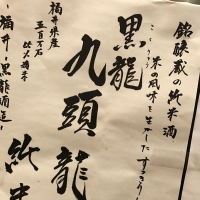 銘醸蔵の純米酒
米の風味を生かした
黒龍
九頭龍
福井県産
五百万石
純米
~福井・黒龍酒造~